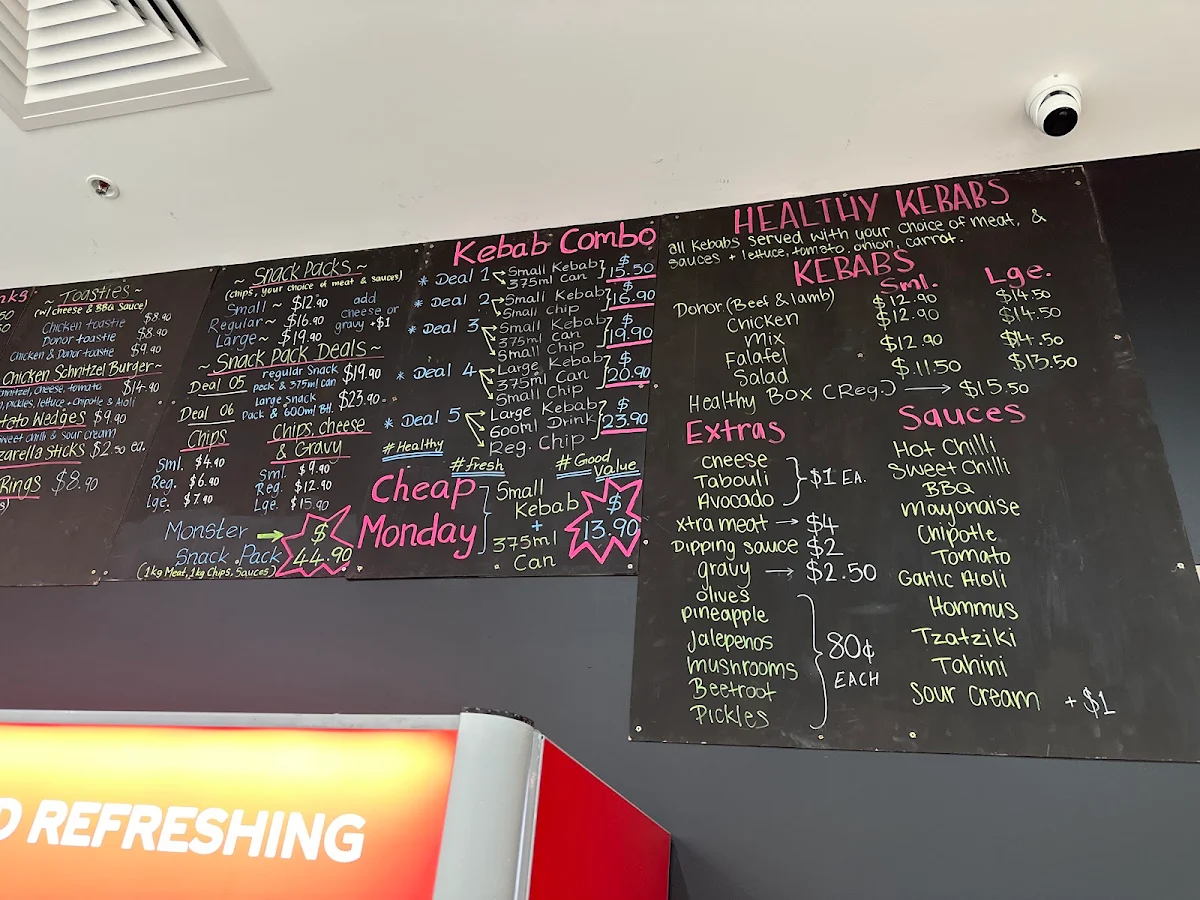 nks
50
~ Toasties ~
(w/ cheese & BBQ Sauce)
Chicken toastie $8.90
Donor toastie $8.90
Chicken & Donor toastie $9.90
Chicken Schnitzel Burger ~
schnitzel, cheese, tomato $14.90
pickles, lettuce + Chipotle & Aioli
tato Wedges $9.90
sweet chilli & sour cream
zarella Sticks $2.50 ea.
Rings $8.90
~ Snack Packs ~
(chips, your choice of meat & sauces)
Small ~ $12.90
Regular ~ $16.90
Large ~ $19.90
add
cheese or
gravy +$1
~ Snack Pack Deals ~
Deal 05 regular snack $19.90
pack & 375ml can
Deal 06 Large snack $23.90
Pack & 600ml Btl.
Chips
Sml. $4.90
Reg. $6.90
Lge. $7.90
Chips, cheese
& Gravy
Sml. $9.90
Reg. $12.90
Lge. $15.90
Monster
Snack Pack
(1kg Meat, 1kg Chips, Sauces)
$
44.90
Kebab Combo
* Deal 1 Small Kebab $
375ml Can 15.50
* Deal 2 Small Kebab $
Small Chip 16.90
* Deal 3 Small Kebab $
375ml Can 19.90
Small Chip
* Deal 4 Large Kebab $
375ml Can 20.90
Small Chip
* Deal 5 Large Kebab $
600ml Drink 23.90
Reg. Chip
#Healthy
#fresh
#Good
Value
Cheap
Monday
Small
Kebab
+
375ml
Can
$
13.90
HEALTHY KEBABS
all Kebabs served with your choice of meat, &
sauces + lettuce, tomato, onion, carrot.
KEBABS
Sml. Lge.
Donor (Beef & lamb) $12.90 $14.50
Chicken $12.90 $14.50
Mix $12.90 $14.50
Falafel $11.50 $13.50
Salad
Healthy Box (Reg.) → $15.50
Extras
cheese
Tabouli $1 EA.
Avocado
xtra meat → $4
Dipping sauce $2
gravy → $2.50
olives
pineapple
Jalepenos
mushrooms
Beetroot
Pickles
80¢
EACH
Sauces
Hot Chilli
Sweet Chilli
BBQ
Mayonaise
Chipotle
Tomato
Garlic Aioli
Hommus
Tzatziki
Tahini
Sour Cream +$1
D REFRESHING